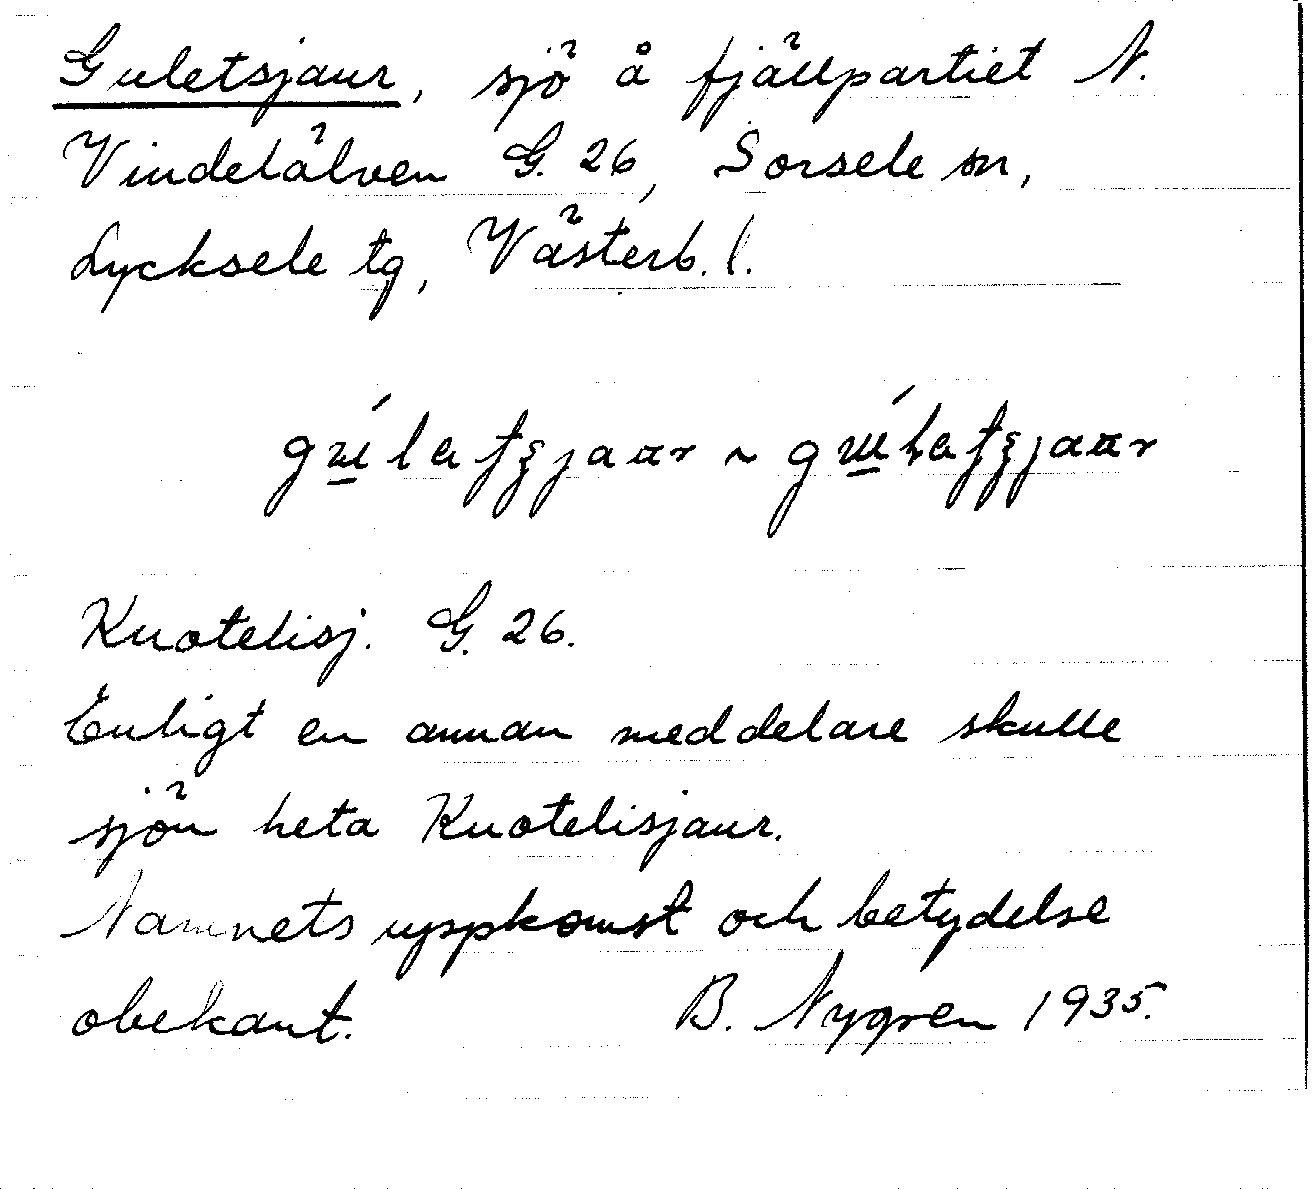 Guletsjaur, sjö å fjällpartiet N.
Vindelälven G. 26, Sorsele sn,
Lycksele tg, Västerb. l.
Kuotelisj. G. 26.
Enligt en annan meddelare skulle
sjön heta Kuotelisjaur.
Namnets uppkomst och betydelse
obekant. B. Nygren 1935.